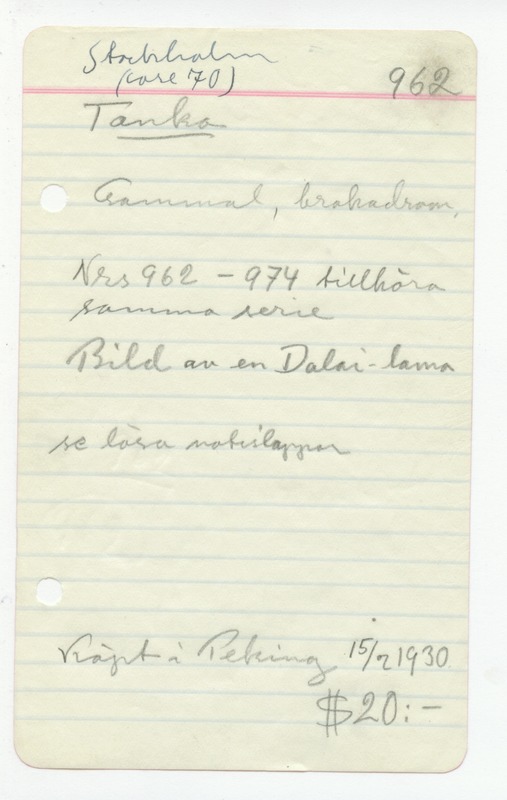 Stockholm
(case 70)
962
Tanka
Gammal, brokadram,
Nrs 962 - 974 tillhöra
samma serie
Bild av en Dalai-lama
se lösa notislappar
Köpt i Peking 15/2 1930
$20:-